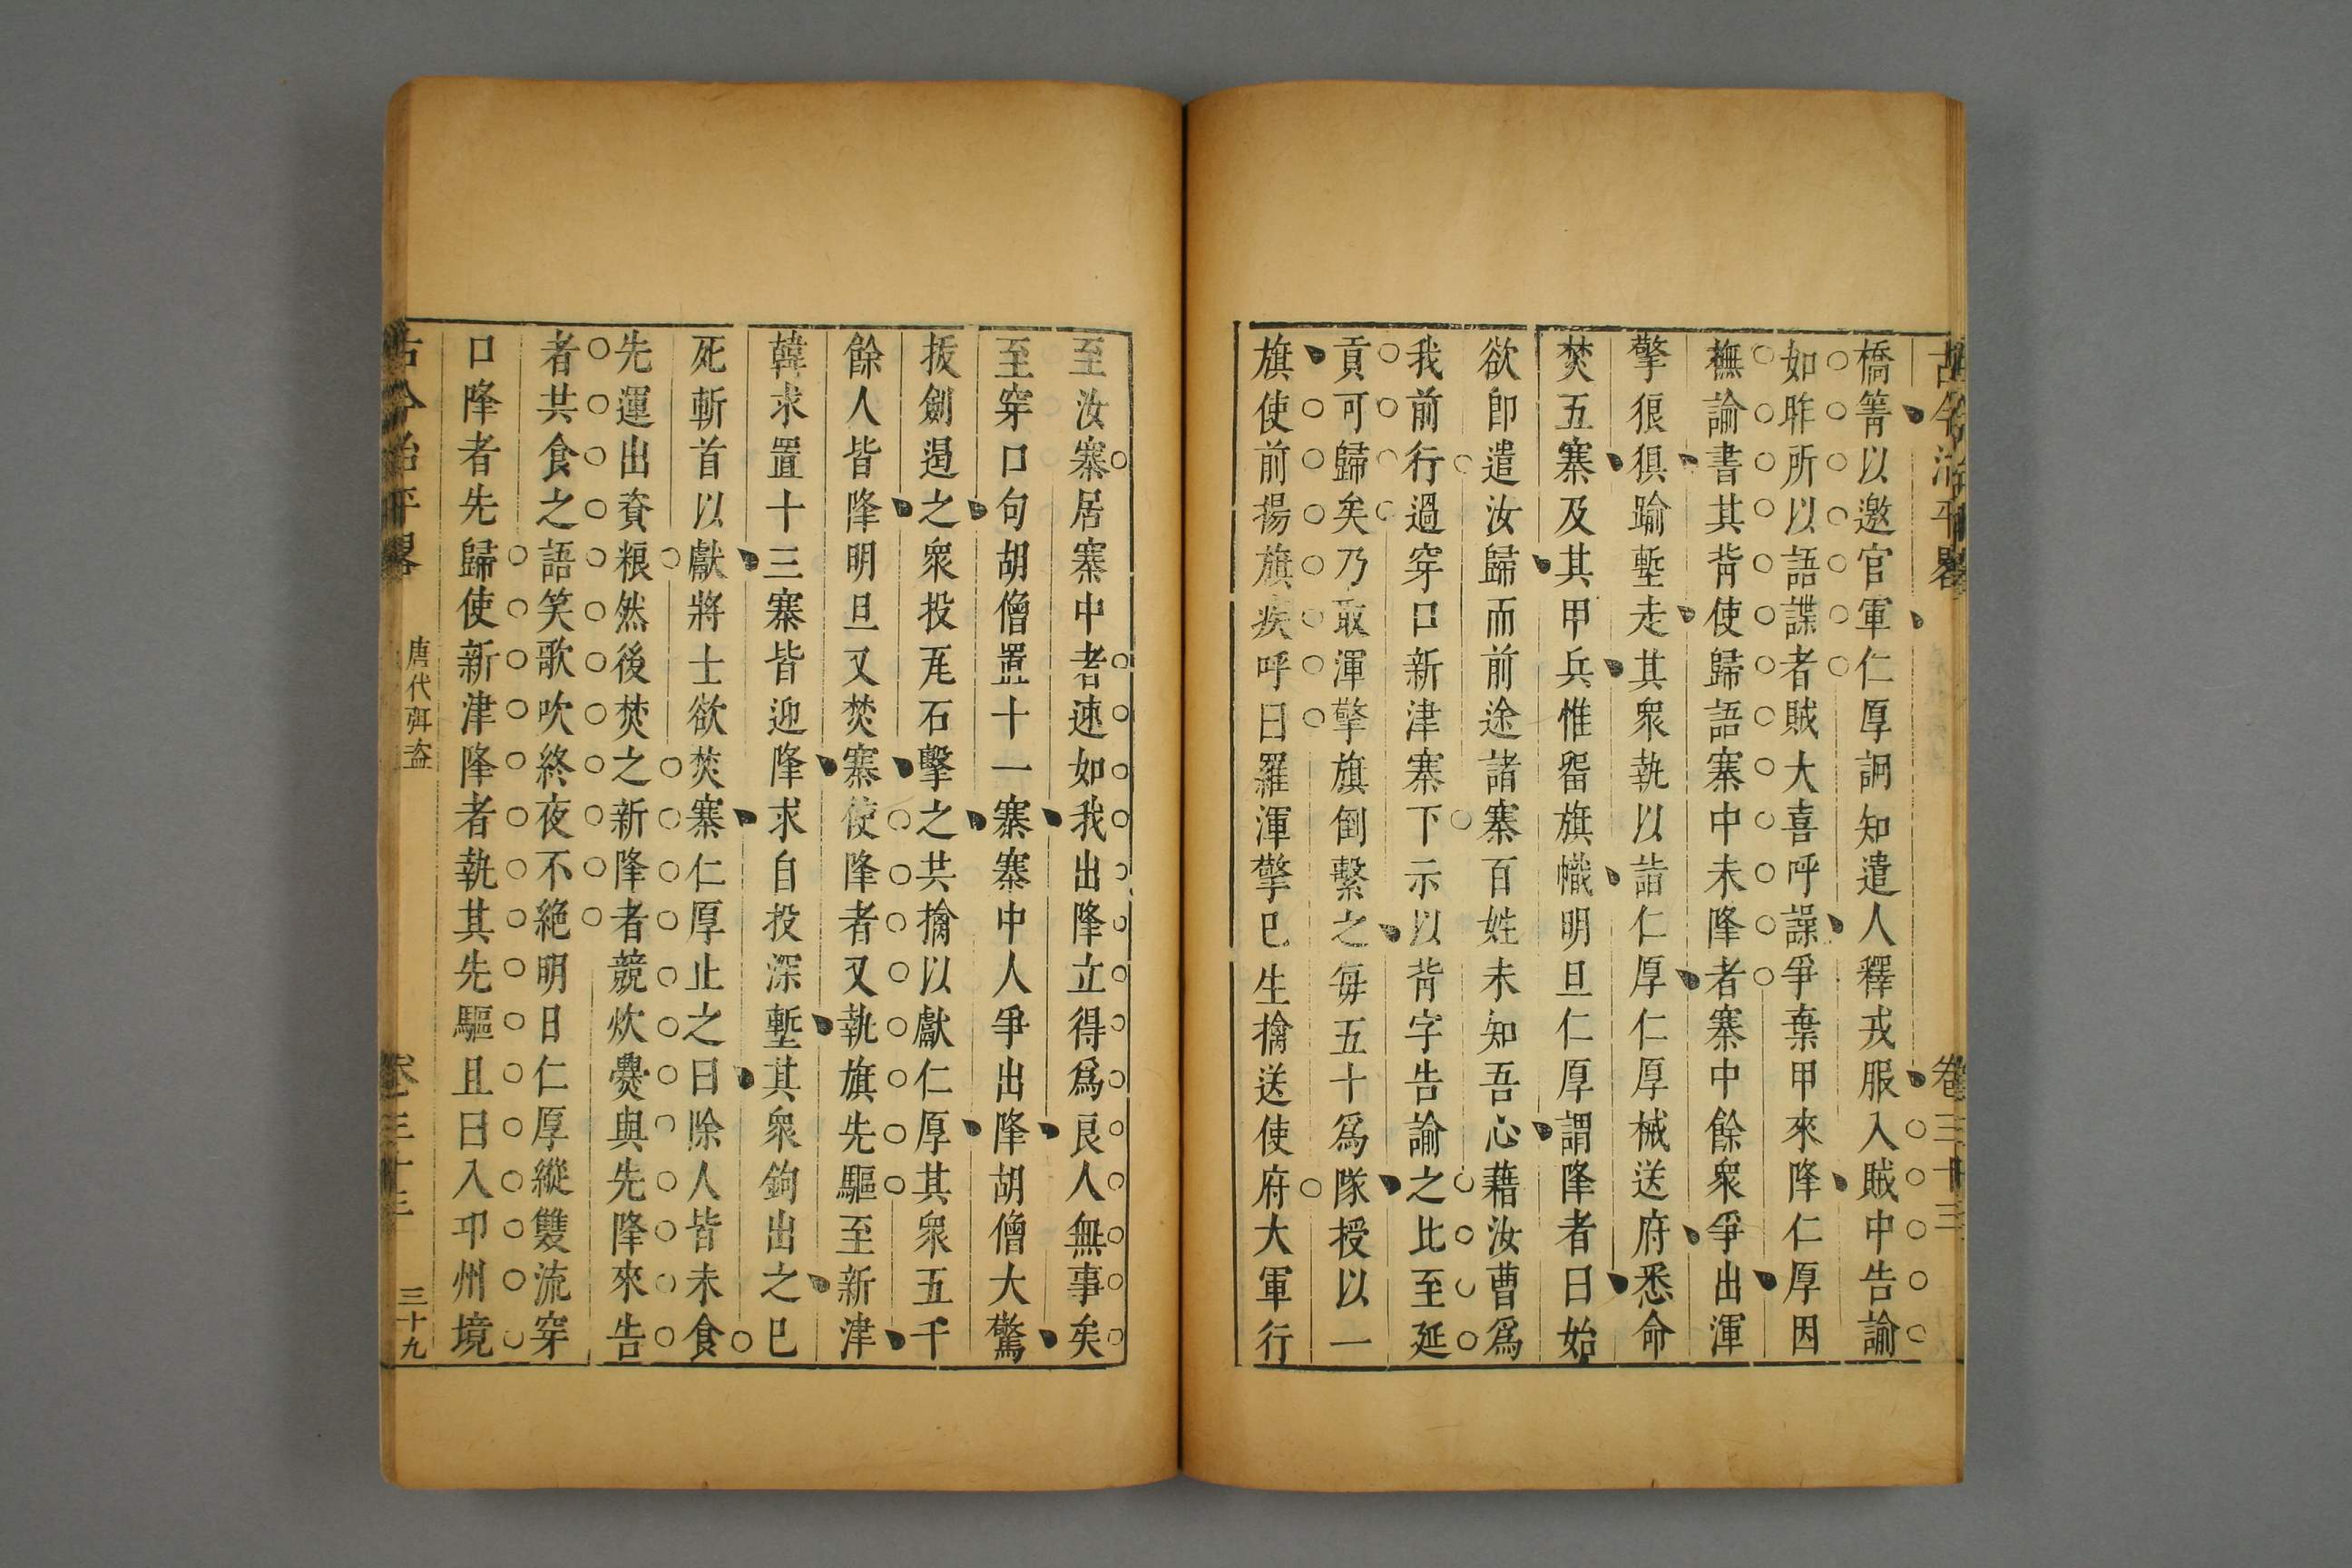 古今治平畧
卷三十三
橋箐以邀官軍仁厚詗知遣人釋戎服入賊中告諭
如昨所以語諜者賊大喜呼譟爭棄甲來降仁厚因
撫諭書其背使歸語寨中未降者寨中餘衆爭出渾
擎狼狽踰塹走其衆執以詣仁厚仁厚械送府悉命
焚五寨及其甲兵惟畱旗幟明旦仁厚謂降者曰始
欲卽遣汝歸而前途諸寨百姓未知吾心藉汝曹爲
我前行過穿口新津寨下示以背字告諭之比至延
貢可歸矣乃取渾擎旗倒繫之每五十爲隊授以一
旗使前揚旗疾呼曰羅渾擎已生擒送使府大軍行
至汝寨居寨中者速如我出降立得爲良人無事矣
至穿口句胡僧置十一寨寨中人爭出降胡僧大驚
拔劍遏之衆投瓦石擊之共擒以獻仁厚其衆五千
餘人皆降明旦又焚寨使降者又執旗先驅至新津
韓求置十三寨皆迎降求自投深塹其衆鉤出之已
死斬首以獻將士欲焚寨仁厚止之曰降人皆未食
先運出資粮然後焚之新降者競炊爨與先降來告
者共食之語笑歌吹終夜不絕明日仁厚縱雙流穿
口降者先歸使新津降者執其先驅且曰入邛州境
古今治平畧
唐代弭盗
卷三十三
三十九